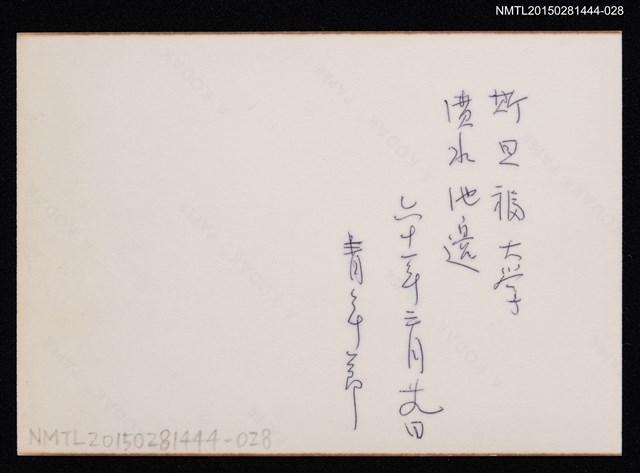 NMTL20150281444-028
斯旦福大学
濆水池邊
六十一年三月廿九日
青年節
A KODAK PAPER
NMTL20150281444-028